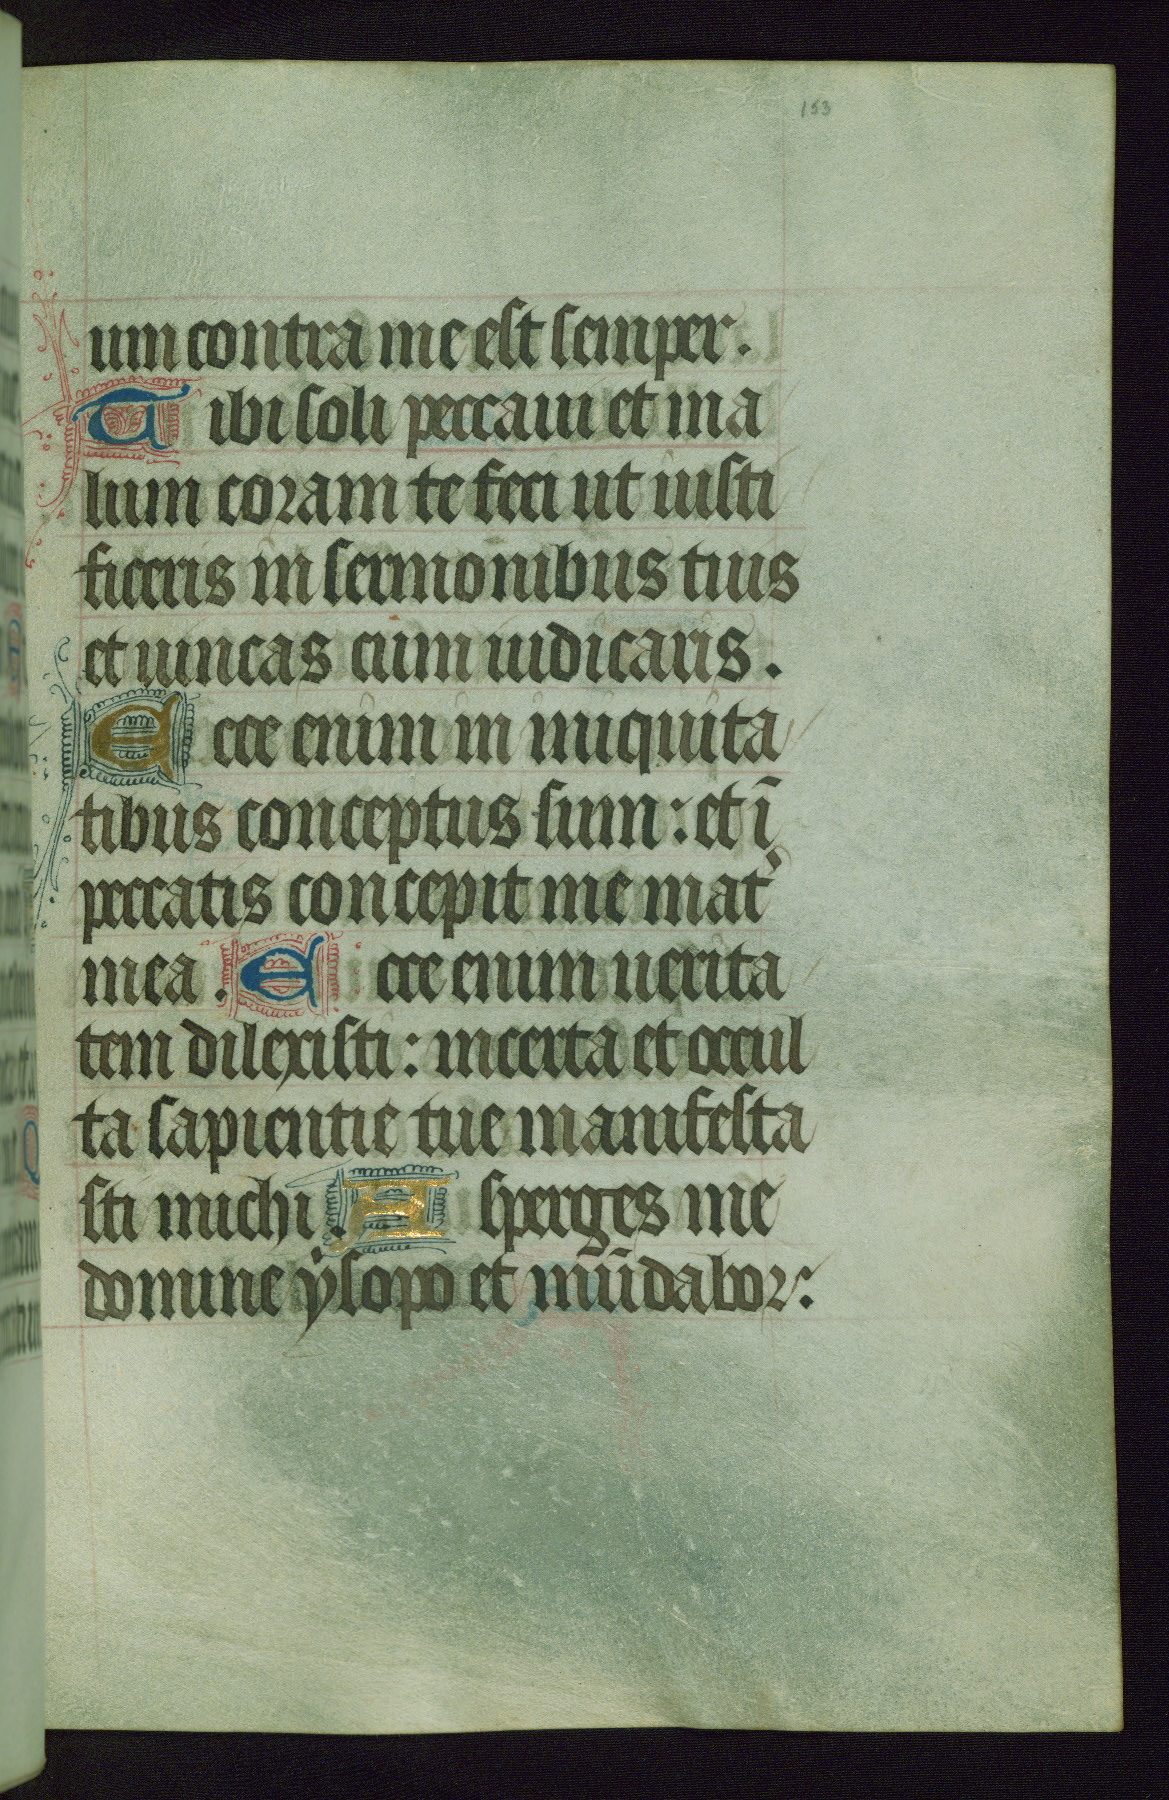 153
um contra me est semper.
Tibi soli peccaui et ma
lum coram te feci ut iusti
ficeris in sermonibus tuis
et uincas cum iudicaris.
Ecce enim in iniquita
tibus conceptus sum: et ī
peccatis concepit me mat̾
mea. Ecce enim uerita
tem dilexisti: incerta et occul
ta sapientie tue manifesta
sti michi. Asperges me
domine ẏsopo et mūdabor: